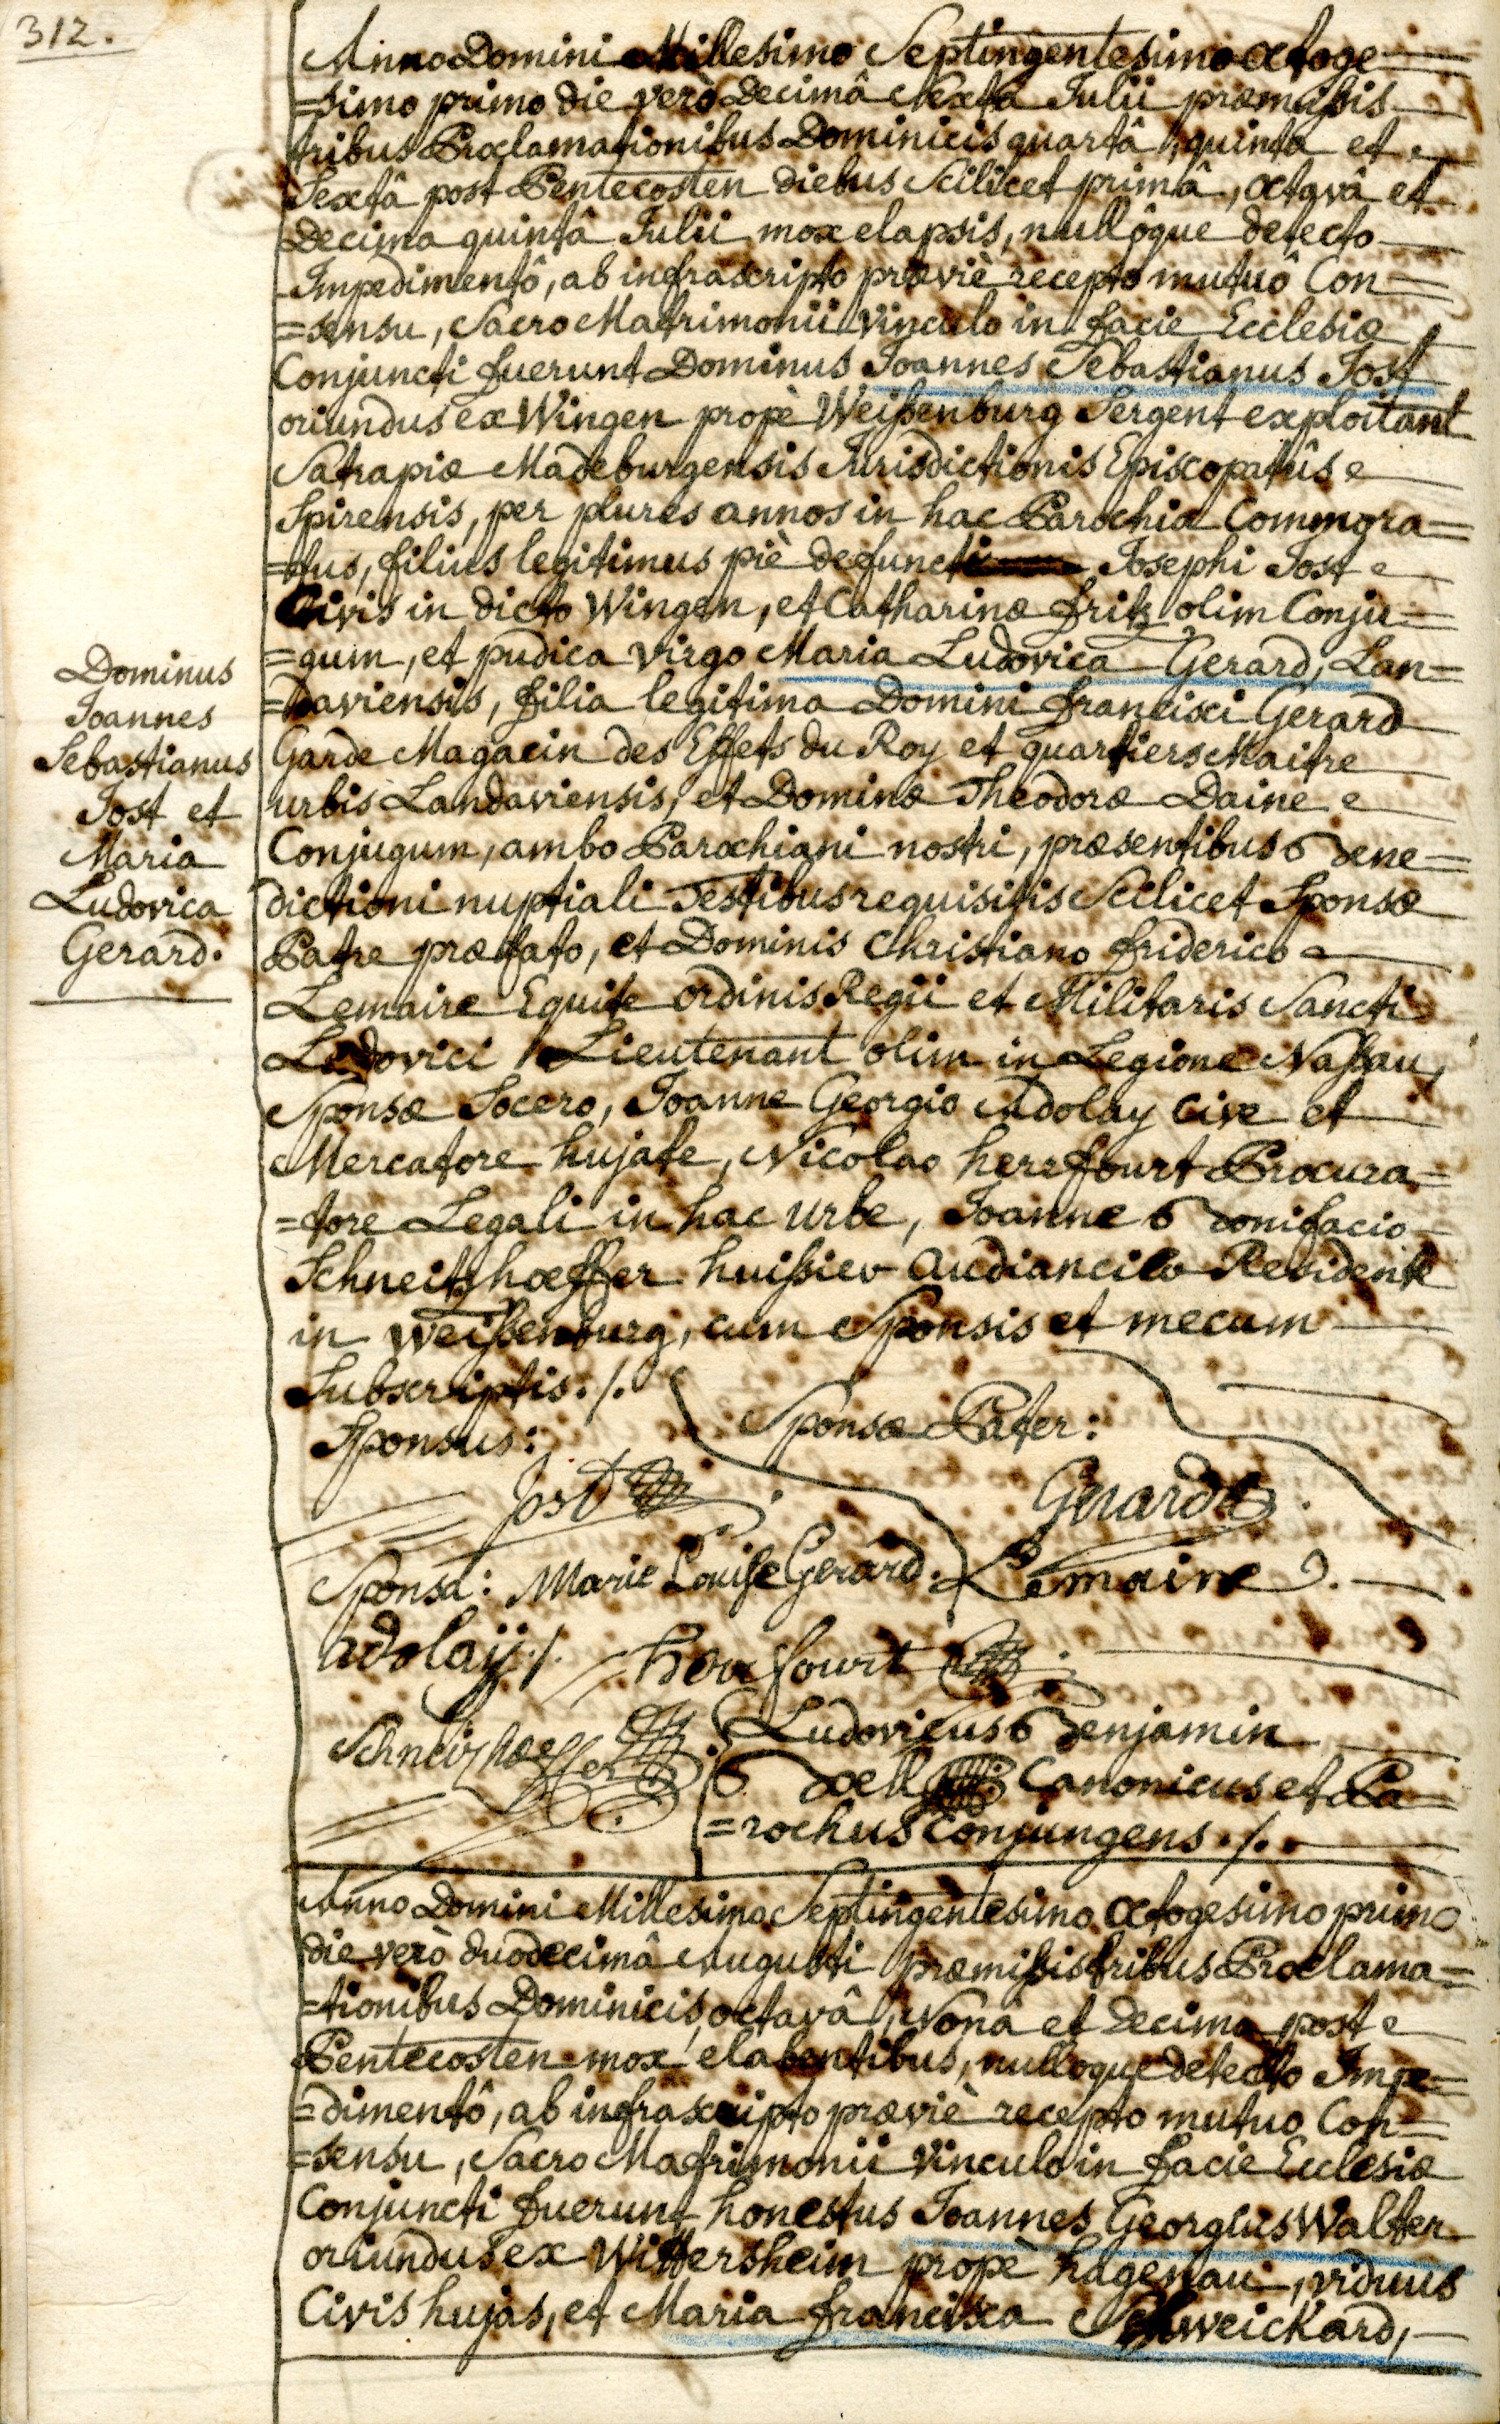 312.
Anno Domini Millesimo Septingentesimo octoge=
=simo primo die verò Decimâ Sexta Julii præmißis
tribus Proclamationibus Dominicis quartâ, quinta et
Sextâ post Pentecosten diebus Scilicet primâ, octavâ et
Decima quintâ Julii mox elapsis, nullôque detecto
Impedimentô, ab infrascripto præviè recepto mutuô Con=
=sensu, Sacro Matrimonii Vinculo in facie Ecclesiæ
Conjuncti fuerunt Dominus Joannes Sebastianus Jost
oriundus ex Wingen propè Weißenburg Sergent exploitant
Satrapiæ Madeburgensis Jurisdictionis Episcopatûs
Spirensis, per plures annos in hac Parochia Commora=
=tus, filius legitimus piè defuncti Josephi Jost
Civis in dicto Wingen, et Catharinæ fritz olim Conju=
=gum, et pudica virgo Maria Ludovica Gerard, Lan=
=daviensis, filia legitima Domini francisci Gerard
Garde Magacin des Effets du Roy et quartiers Maitre
urbis Landaviensis, et Dominæ Theodoræ Daine
Conjugum, ambo Parochiani nostri, præsentibus Bene=
dictioni nuptiali Testibus requisitis Scilicet Sponsæ
Patre præfato, et Dominis Christiano friderico
Lemaire Equite ordinis Regii et Militaris Sancti
Ludovici Lieutenant olim in Legione Naßau,
Sponsæ Socero, Joanne Georgio Adolay Cive et
Mercatore hujate, Nicolao herrfourt Procura=
=tore Legali in hac Urbe, Joanne Bonifacio
Schneitzhoeffer huißier Audiancier Residente
in Weißenburg, cum Sponsis et mecum
Subscriptis ./.
Dominus
Joannes
Sebastianus
Jost et
Maria
Ludovica
Gerard.
Sponsus:
Sponsæ Pater:
Jost
Gerard
Sponsa: Marie Louise Gerard.
Lemaire
adolaÿ ./.
herrfourt
Schneitzhoeffer
Ludovicus Benjamin
Boell Canonicus et Pa=
=rochus Conjungens ./.
Anno Domini Millesimo Septingentesimo octogesimo primo
die verò duodecimâ Augusti præmißis tribus Proclama=
=tionibus Dominicis, octavâ, Nonâ et decima post
Pentecosten mox elabentibus, nulloque detecto Impe=
=dimentô, ab infrascripto præviè recepto mutuo Con=
=sensu, Sacro Matrimonii Vinculo in facie Ecclesiæ
Conjuncti fuerunt honestus Joannes Georgius Walter
oriundus ex Wittersheim propè hagenau, viduus
Civis hujas, et Maria francisca Schweickard,